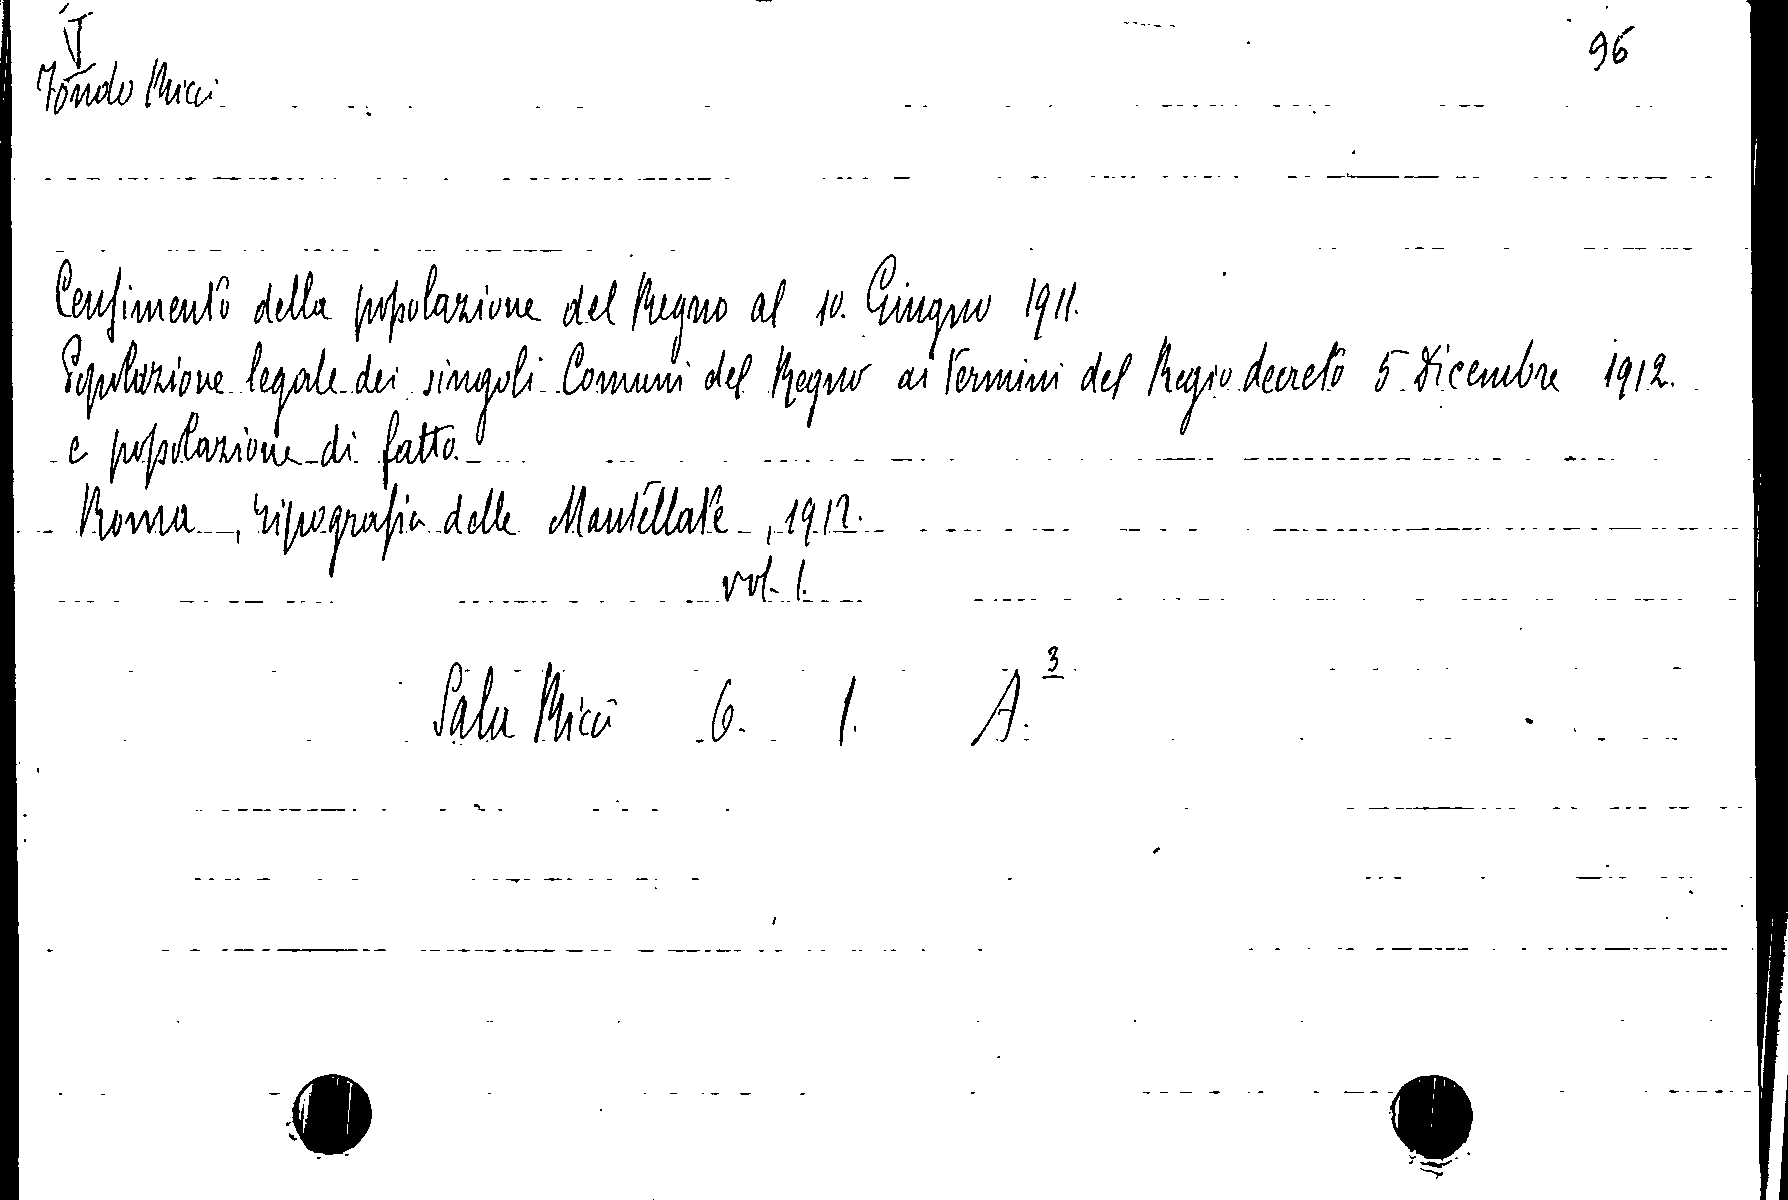 96
Fondo Ricci
Censimento della popolazione del Regno al 10. Giugno 1911.
Popolazione legale dei singoli Comuni del Regno ai termini del Regio decreto 5 Dicembre 1912.
e popolazione di fatto.
Roma, tipografia delle Mantellate, 1912.
vol. 1.
3
Sala Ricci 6. 1. A.